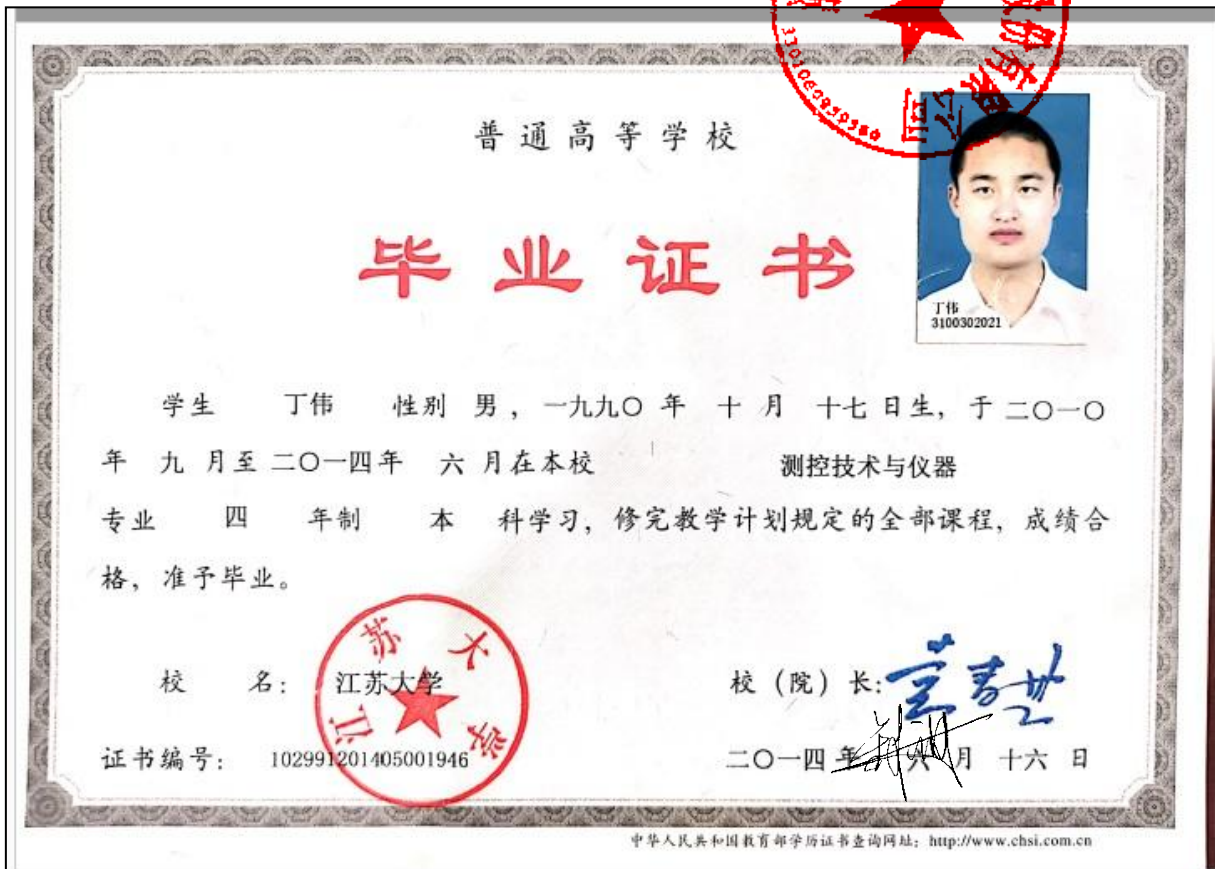 普通高等学校
毕业证书
丁伟
3100302021
学生 丁伟 性别 男，一九九〇 年 十 月 十七 日生，于 二〇一〇
年 九 月至 二〇一四年 六 月在本校 测控技术与仪器
专业 四 年制 本 科学习，修完教学计划规定的全部课程，成绩合
格，准予毕业。
校 名： 江苏大学
江苏大学
校（院）长：
证书编号： 102991201405001946
二〇一四 年 六 月 十六 日
中华人民共和国教育部学历证书查询网址：http://www.chsi.com.cn